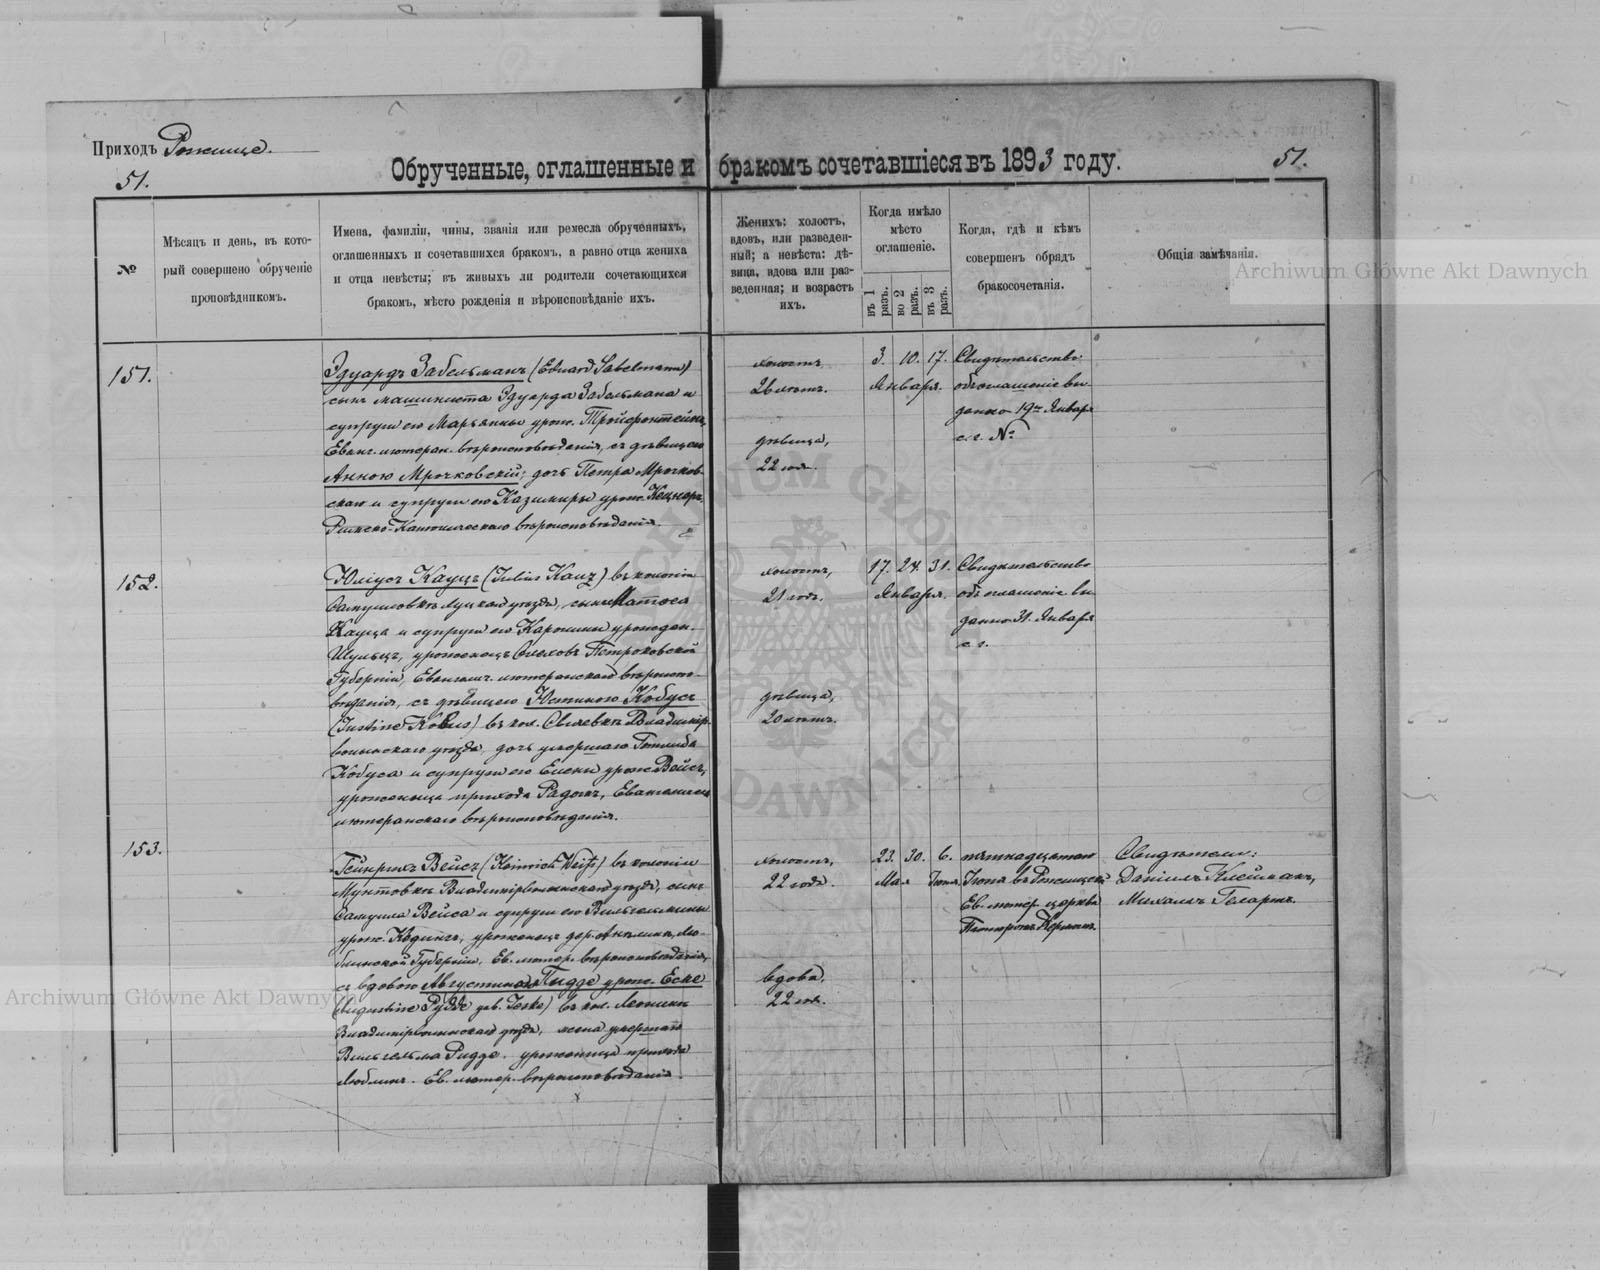 Приходъ Рожище.
51.
Обрученные, оглашенные и бракомъ сочетавшіеся въ 1893 году.
51.
№
Мѣсяцъ и день, въ кото-
рый совершено обрученіе
проповѣдникомъ.
Имена, фамиліи, чины, званія или ремесла обрученныхъ,
оглашенныхъ и сочетавшихся бракомъ, а равно отца жениха
и отца невѣсты; въ живыхъ ли родители сочетающихся
бракомъ, мѣсто рожденія и вѣроисповѣданіе ихъ.
Женихъ: холостъ,
вдовъ, или разведен-
ный; а невѣста: дѣ-
вица, вдова или раз-
веденная; и возрастъ
ихъ.
Когда имѣло
мѣсто
оглашеніе.
въ 1 разъ.
во 2 разъ.
въ 3 разъ.
Когда, гдѣ и кѣмъ
совершенъ обрядъ
бракосочетанія.
Общія замѣчанія.
Archiwum Główne Akt Dawnych
151.
Эдуардъ Забельманъ (Eduard Sabelmann)
сынъ машиниста Эдуарда Забельмана и
супруги его Марьянны урож.
Еванг. лютеран. вѣроисповѣданія, съ дѣвицею
Анною Мрочковскій; дочь Петра Мрочков-
скаго и супруги его Казимиры урож.
Римско-Католическаго вѣроисповѣданія.
холостъ
26 лѣтъ.
дѣвица,
22 года.
3. 10. 17.
Января.
Свидѣтельство
объ оглашеніе вы-
данно 19го Января
с. г. №
152.
Юліусъ Кауцъ (Julius Kauz) въ колоніи
Самуиловкѣ Луцкаго уѣзда, сынъ
Кауца и супруги его Каролины урожден.
Шульцъ, уроженецъ Петроковской
Губерніи, Евангелич. лютеранскаго вѣроиспо-
вѣданія, съ дѣвицею Юстиною Кобусъ
(Justine Kobus) въ кол. Владимір-
волынскаго уѣзда, дочь умершаго Готлиба
Кобуса и супруги его Елены урож. Вейсъ,
уроженица прихода Радомъ, Евангелическ
лютеранскаго вѣроисповѣданія.
холостъ,
21 годъ.
дѣвица,
20 лѣтъ.
17. 24. 31.
Января.
Свидѣтельство
объ оглашеніе вы-
данно 31. Января
с. г.
153.
Гейнрихъ Вейсъ (Heinrich Weiß) въ колоніи
Владимірволынскаго уѣзда, сынъ
Самуила Вейса и супруги его Вильгельмины
урож. уроженецъ дер. Лю-
блинской Губерніи, Ев. лютер. вѣроисповѣданія,
съ вдовою Августиною Пидде урож. Еске
(Augustine Pydde geb. Jeske) въ кол.
Владимірволынскаго уѣзда, жена умершаго
Вильгельма Пидде, уроженица прихода
Люблинъ. Ев. лютер. вѣроисповѣданія.
холостъ,
22 года.
вдова,
22 год.
23. 30. 6.
Мая Іюня.
пятнадцатаго
Іюня въ Рожищской
Ев. лютер. церквѣ
Пасторомъ Керномъ.
Свидѣтели:
Даніилъ Клейманъ,
Михаилъ
Archiwum Główne Akt Dawnych
ARCHIWUM GŁÓWNE AKT DAWNYCH